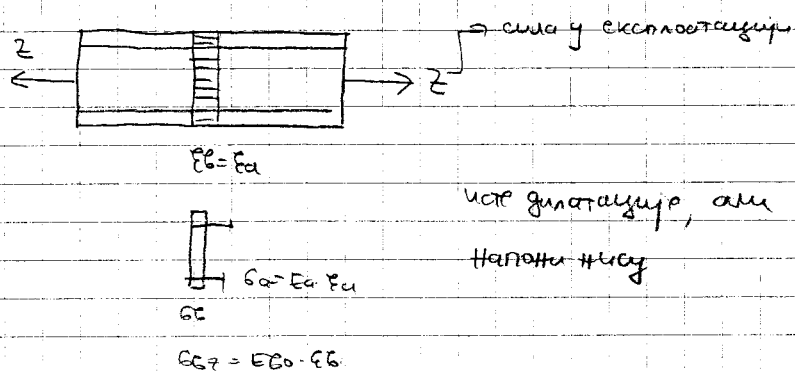 Z
Z → сила у експлоатацији
εб = εа
исте дилатације, али
напони нису
σа = Eа · εа
σб
σбz = Eб0 · εб